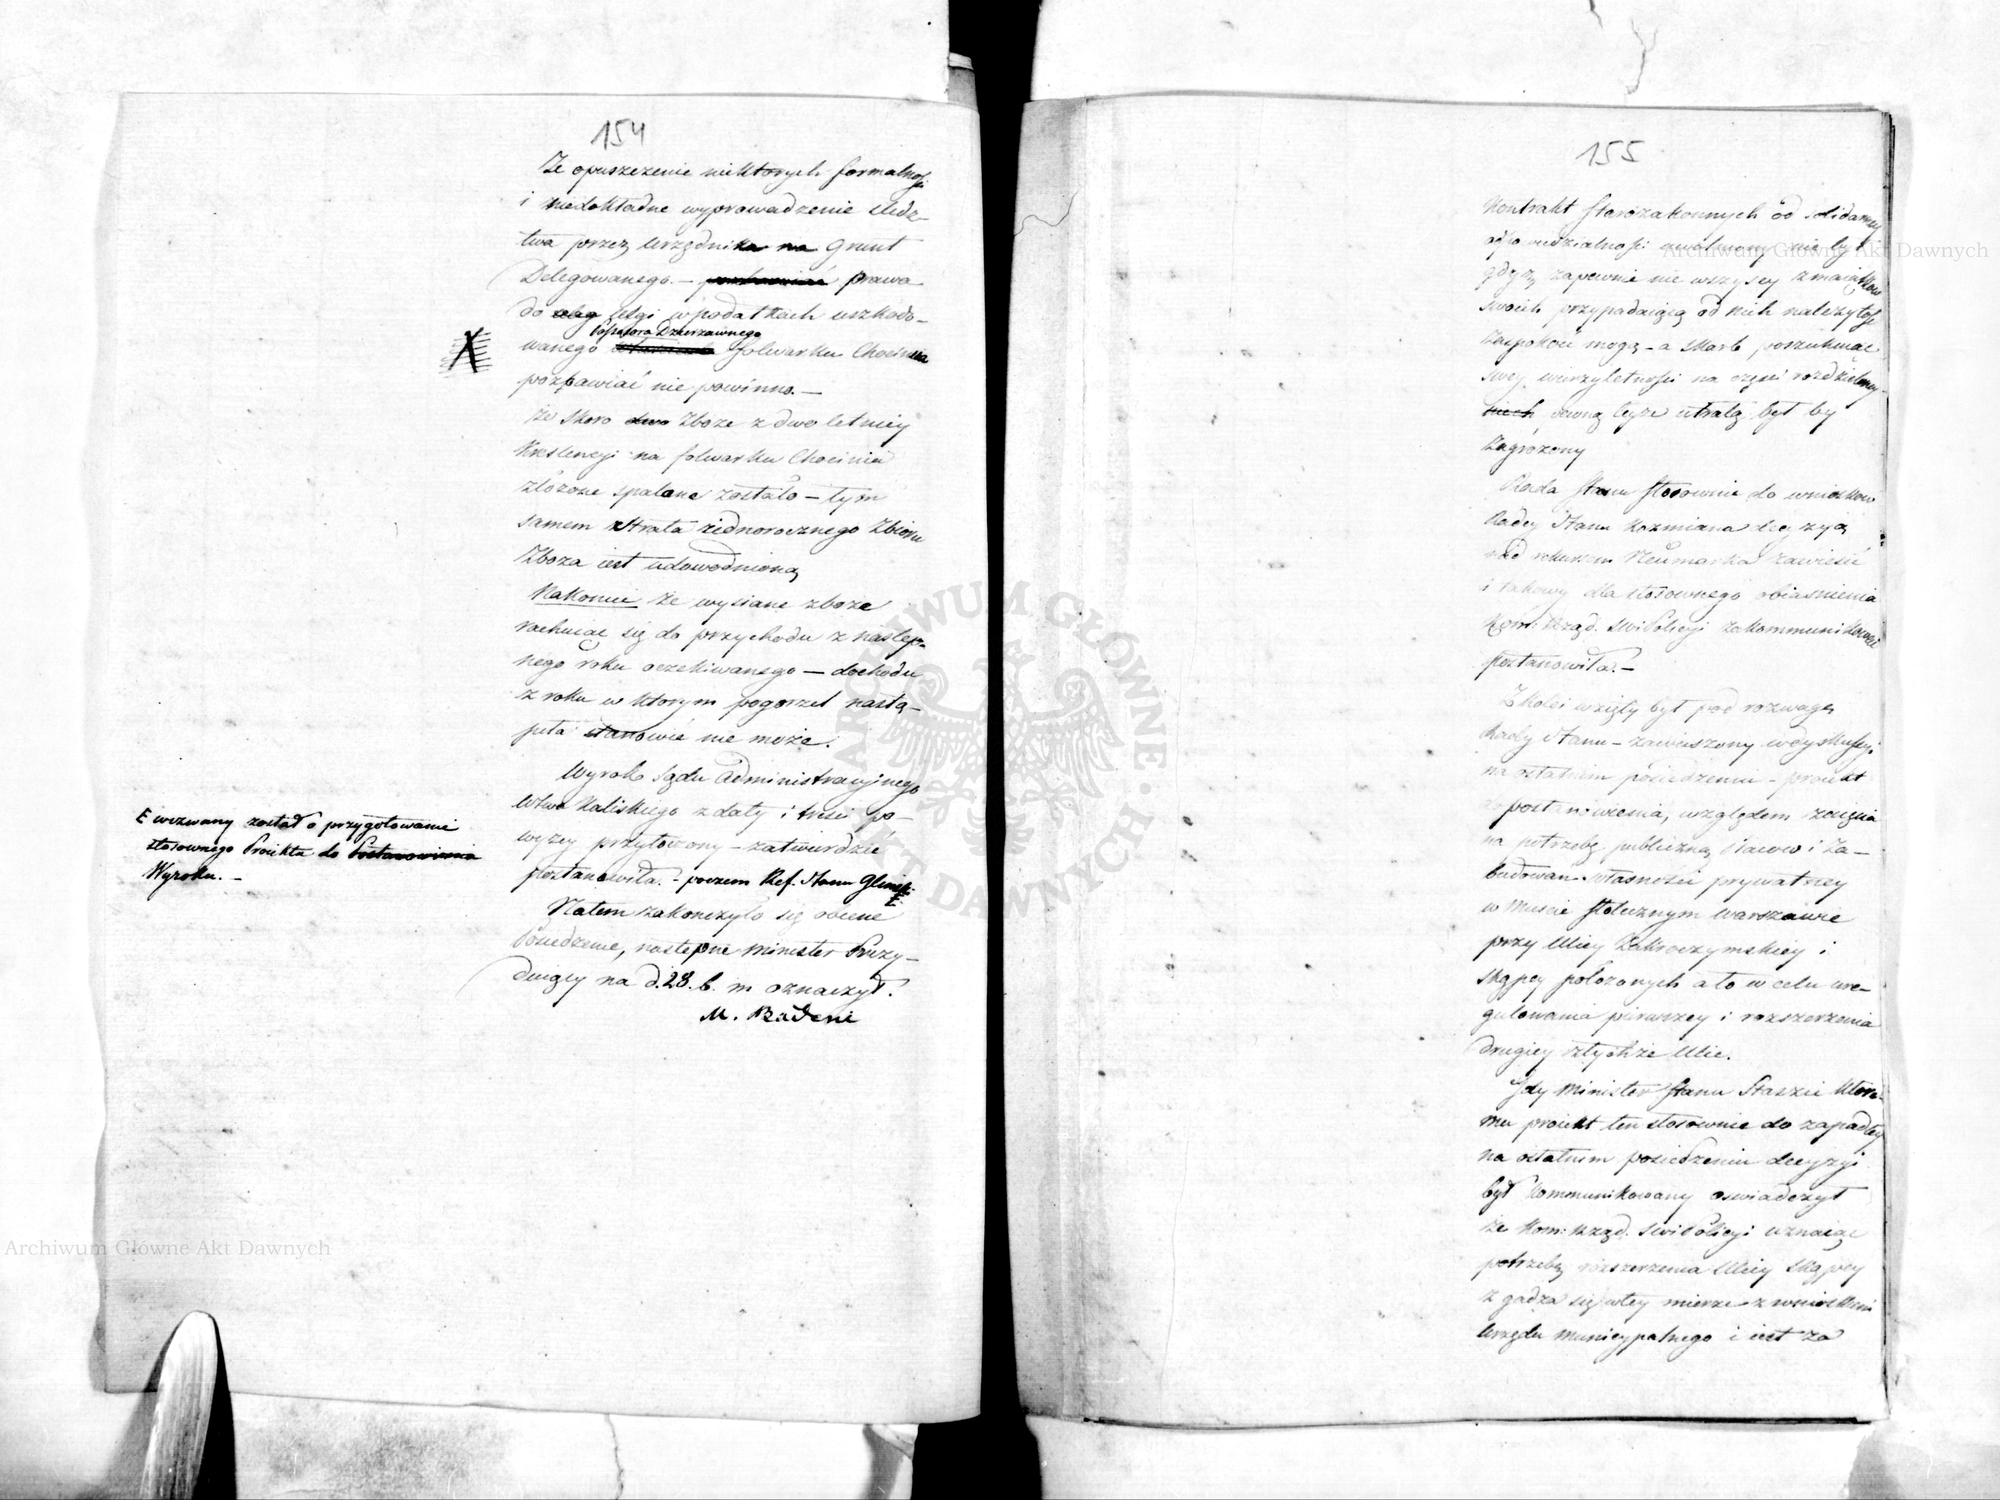 154
Że opuszczenie niektorych formalności
i niedokładne wyprowadzenie śledz-
twa przez urzędnika na Grunt
Delegowanego. — prawa
do ulgi w podatkach uszkodo-
Possesora Dzierzawnego
wanego folwarku Chocinia
pozbawiać nie powinno. —
że skoro dwo Zboże z dwoletniey
Krestencyi na folwarku Chocinia
złożone spalone zostało — tym
samem strata iednorocznego Zbioru
Zboża iest udowodnioną
Nakoniec że wysiane zboże
rachuiąc się do przychodu z nastę-
pnego roku oczekiwanego — dochodu
z roku w ktorym pogorzel nastą-
piła stanowić nie może.
Wyrok Sądu Administracyjnego
Wdwa Kaliskiego z daty i treści po-
wyżey przytoczony — zatwierdzić
postanowiła. — poczem Ref. Stanu Gliński
E
E wezwany został o przygotowanie
stosownego Proiektu do Postanowienia
Wyroku. —
Natem zakonczyło się obecne
Posiedzenie, następne Minister Prezy-
duiący na d. 28. b. m oznaczył.
M. Badeni
155
Kontrakt Starozakonnych od solidarney
odpowiedzialności uwolniony nie był
gdyż zapewnie nie wszyscy z maiątkow
swoich przypadaiącą od nich należytość
Zaspokoić mogą — a Skarb poszukuiąc
swey wierzytelności na części rozdzieloney
niech oczewistą utratą był by
Zagrożony
Rada Stanu stosownie do wniosku
Radcy Stanu Kozmiana decyzyą
nad rekursem Neumarka zawiesić
i takowy dla stosownego obiasnienia
Kom: Rząd. SwiPolicyi zakommunikować
postanowiła. —
Z kolei wzięty był pod rozwagę
Rady Stanu — zawieszony w dyskussyi
na ostatnim posiedzeniu — proiekt
postanowienia, względem zaięcia
na potrzebę publiczną Placow i Za-
budowan własności prywatney
w Miescie Stołecznym Warszawie
przy Ulicy Zakroczymskiey i
Skąpey położonych a to w celu ure-
gulowania pierwszey i rozszerzenia
drugiey z tychże Ulic.
Gdy Minister Stanu Staszic które-
mu proiekt ten stosownie do zapadłey
na ostatnim posiedzeniu decyzyi
był kommunikowany oswiadczył
że Kom: Rząd. SwiPolicyi uznaiąc
potrzebę rozszerzenia Ulicy Skąpey
zgadza się w tey mierze z wnioskiem
Urzędu Municypalnego i iest za
Archiwum Główne Akt Dawnych
Archiwum Główne Akt Dawnych
ARCHIWUM GŁÓWNE AKT DAWNYCH